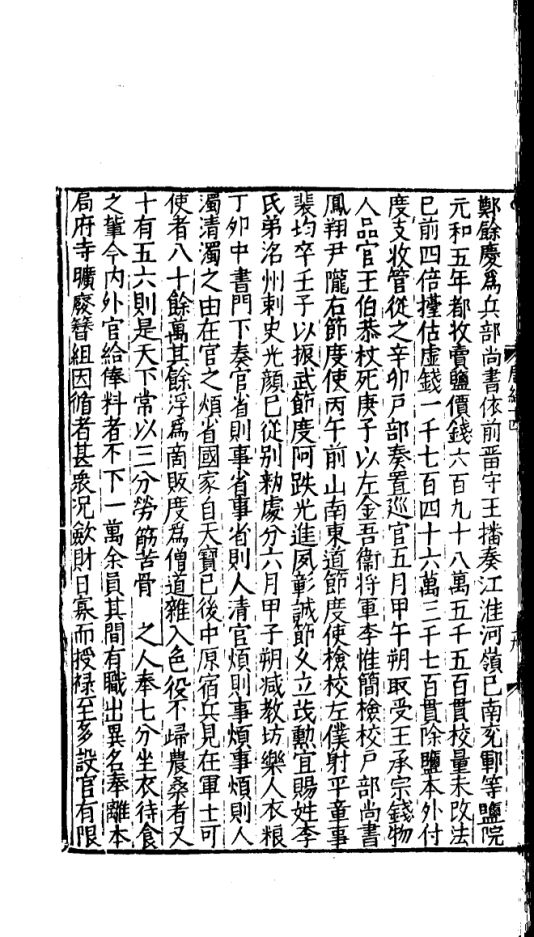 鄭餘慶爲兵部尚書依前畱守王播奏江淮河嶺已南兖鄆等鹽院
元和五年都收賣鹽價錢六百九十八萬五千五百貫校量未改法
已前四倍擡估虛錢一千七百四十六萬三千七百貫除鹽本外付
度支收管從之辛卯戸部奏置巡官五月甲午朔取受王承宗錢物
人品官王伯恭杖死庚子以左金吾衞將軍李惟簡檢校戸部尚書
鳳翔尹隴右節度使丙午前山南東道節度使檢校左僕射平章事
裴均卒壬子以振武節度阿跌光進夙彰誠節乆立茂勳宜賜姓李
氏弟洺州刺史光顔已從别勑處分六月甲子朔减教坊樂人衣粮
丁夘中書門下奏官省則事省事省則人清官煩則事煩事煩則人
濁清濁之由在官之煩省國家自天寶已後中原宿兵見在軍士可
使者八十餘萬其餘浮爲啇販度爲僧道雜入色役不歸農桑者又
十有五六則是天下常以三分勞筋苦骨 之人奉七分坐衣待食
之軰今内外官給俸料者不下一萬余員其間有職出異名奉離本
局府寺曠廢簪組因循者甚衆況斂財日寡而授禄至多設官有限